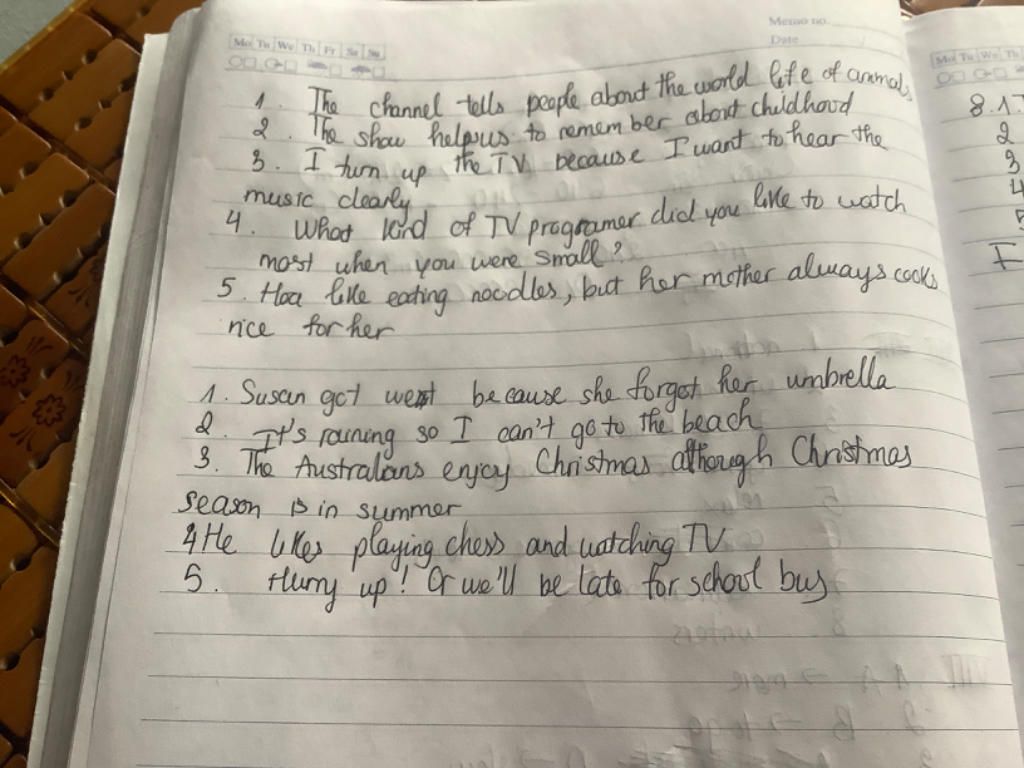 Memo no.
Date
Mo Tu We Th Fr Sa Su
1. The channel tells people about the world life of animals
2. The show helps us to remember about childhood
3. I turn up the TV because I want to hear the
music clearly
4. What kind of TV programer did you like to watch
most when you were small?
5. Hoa like eating noodles, but her mother always cooks
rice for her
1. Susan got wet because she forgot her umbrella
2. It's raining so I can't go to the beach
3. The Australians enjoy Christmas although Christmas
season is in summer
4 He likes playing chess and watching TV
5. Hurry up! Or we'll be late for school bus
Mo Tu We Th
8.1.
2
3
4
5